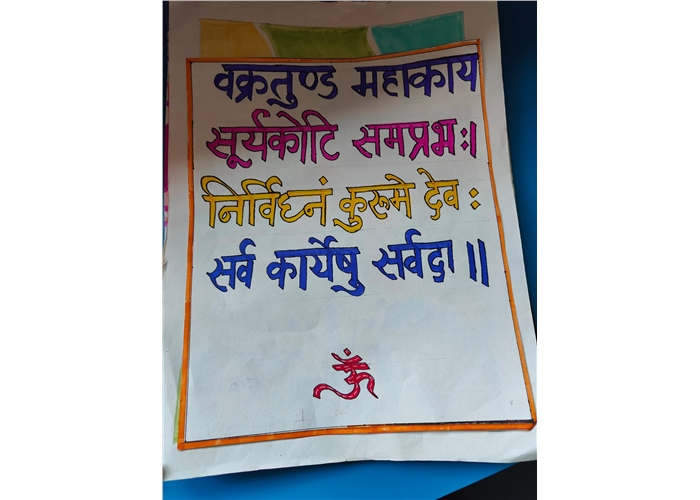 वक्रतुण्ड महाकाय
सूर्यकोटि समप्रभः।
निर्विघ्नं कुरूमे देव :
सर्व कार्येषु सर्वदा ॥
ॐ